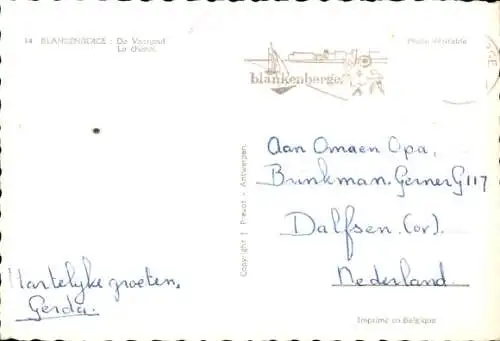 14 BLANKENBERGE : De Vaargeul.
Le chenal.
Photo Véritable
blankenberge
Copyright I. Prevot - Antwerpen.
Aan Oma en Opa,
Brinkman. Gerner G 117
Dalfsen. (ov).
Nederland.
Hartelijke groeten,
Gerda.
Imprimé en Belgique